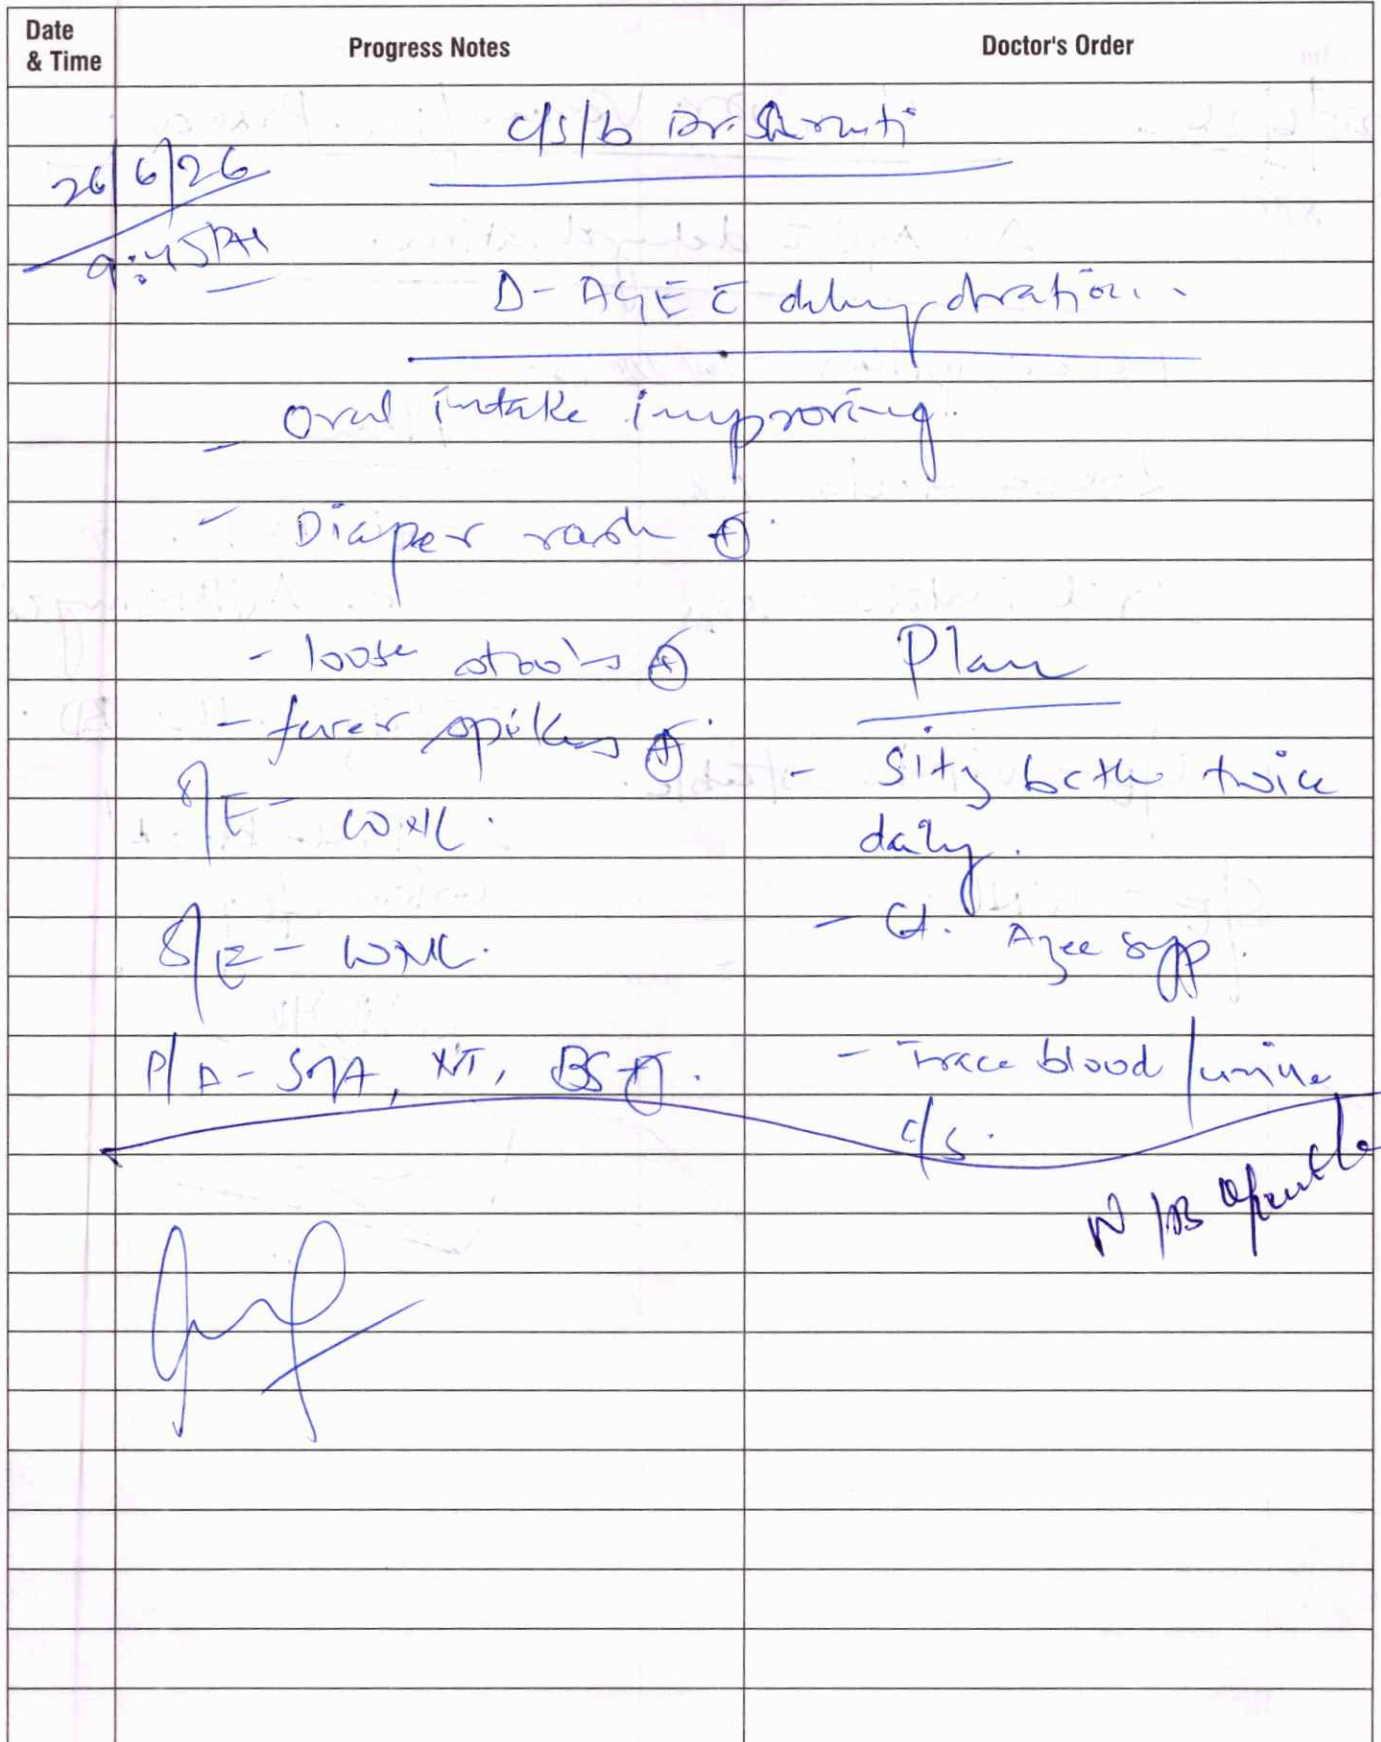 Date & Time
Progress Notes
Doctor's Order
c/s/b Dr. Shruti
26/6/26
9:45PM
D- AGE c̄ dehydration.
- Oral intake improving.
- Diaper rash ⊕.
- loose stools ⊕
- fever spikes ⊕.
S/E - WNL.
S/E - WNL.
P/A - Soft, NT, BS ⊕.
Plan
- Sitz bath twice
daily.
- Ct. Azee syp.
- Trace blood / urine
c/s.
N/B